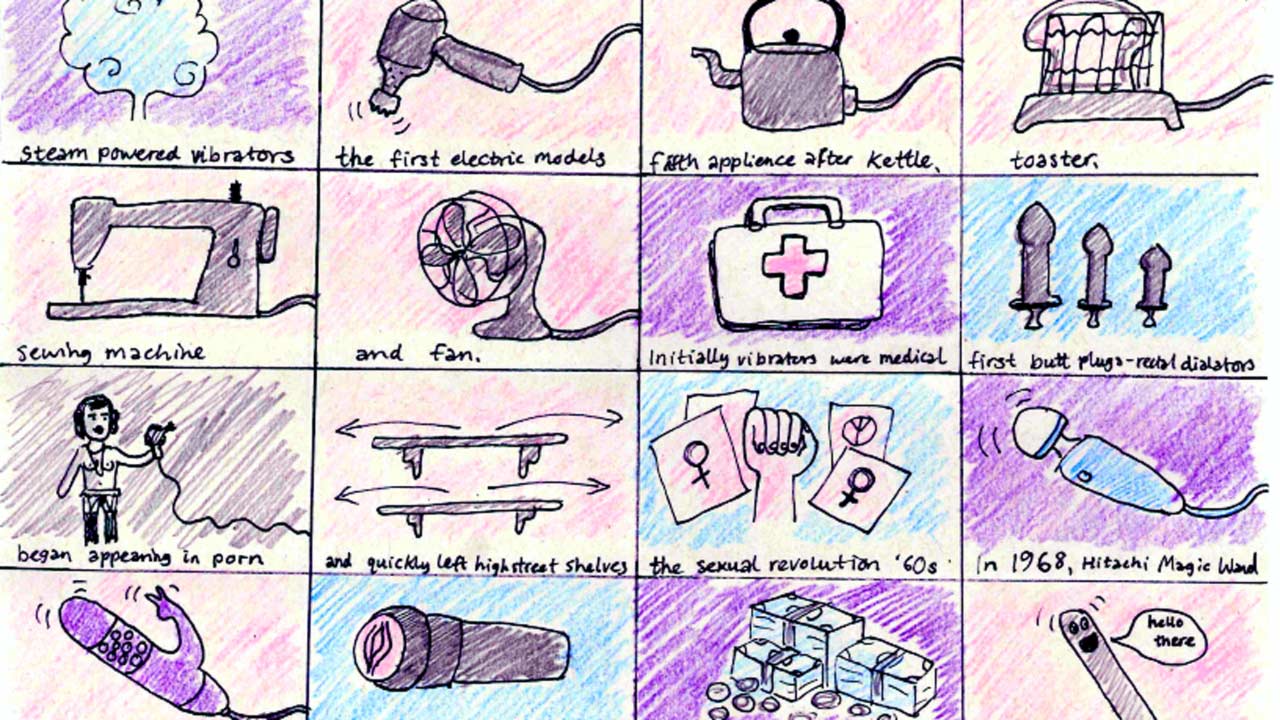 Steam powered vibrators
the first electric models
fifth applience after Kettle,
toaster,
Sewing machine
and fan.
Initially vibrators were medical
first butt plugs-rectal dialators
began appearing in porn
and quickly left highstreet shelves
the sexual revolution '60s
In 1968, Hitachi Magic Wand
hello
there